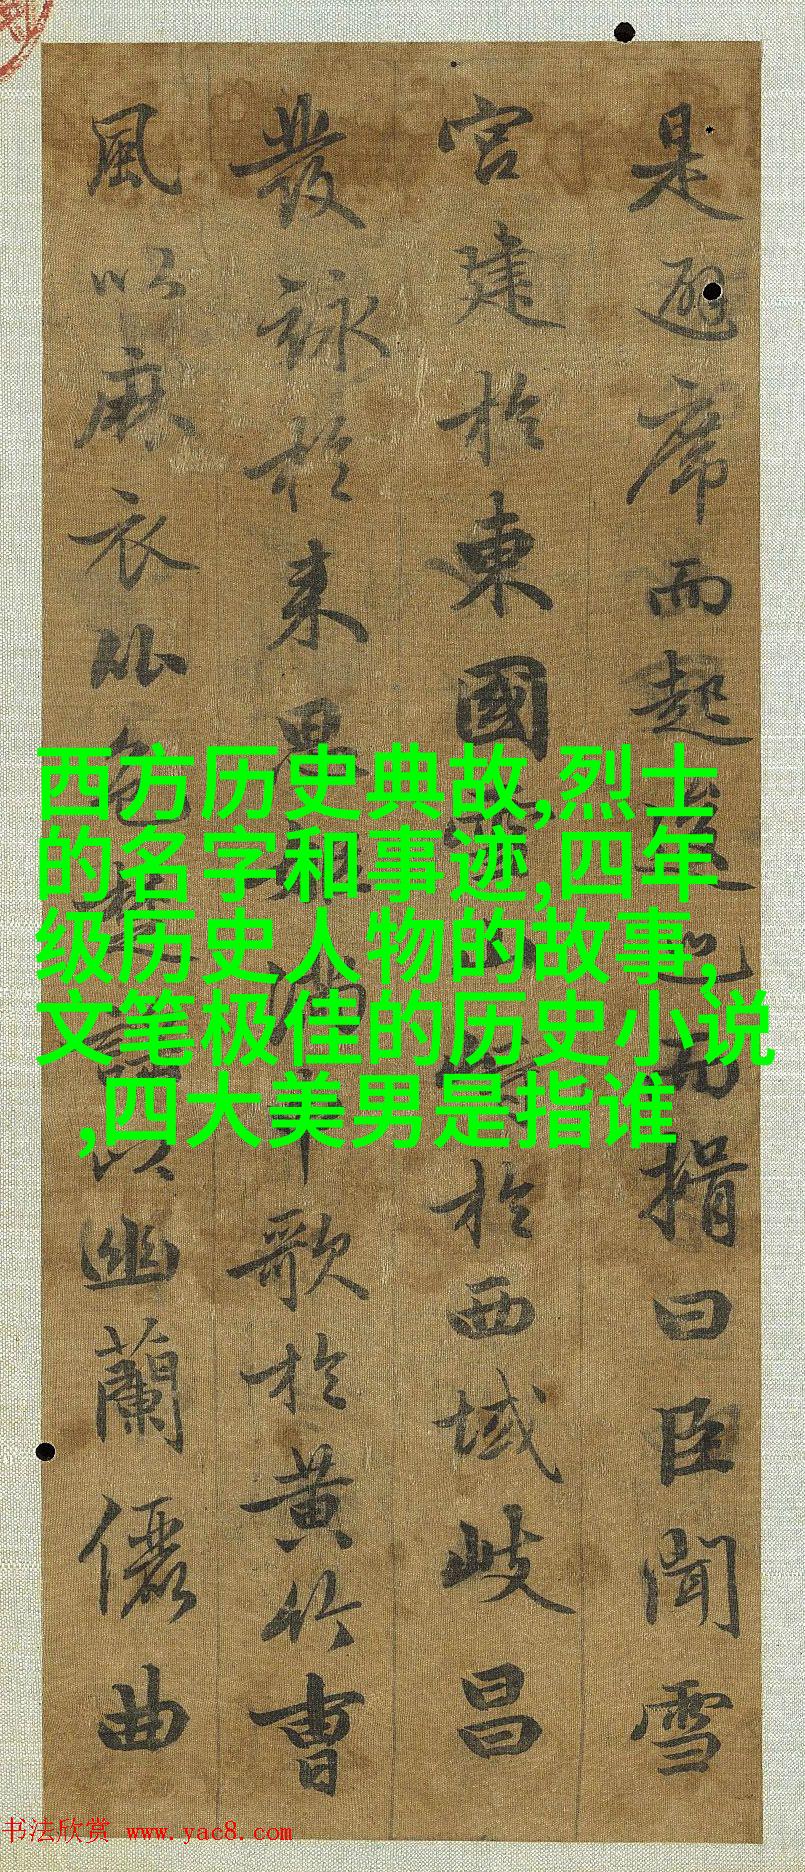 是避席而起逡巡而揖曰臣聞雪
宮建於東國於西域岐昌
發詠於来思滿歌於黄竹曹
風以麻衣比色楚以幽蘭儷曲
西方历史典故,烈士
的名字和事迹,四年
级历史人物的故事,
文笔极佳的历史小说
,四大美男是指谁
书法欣赏 www.yac8.com